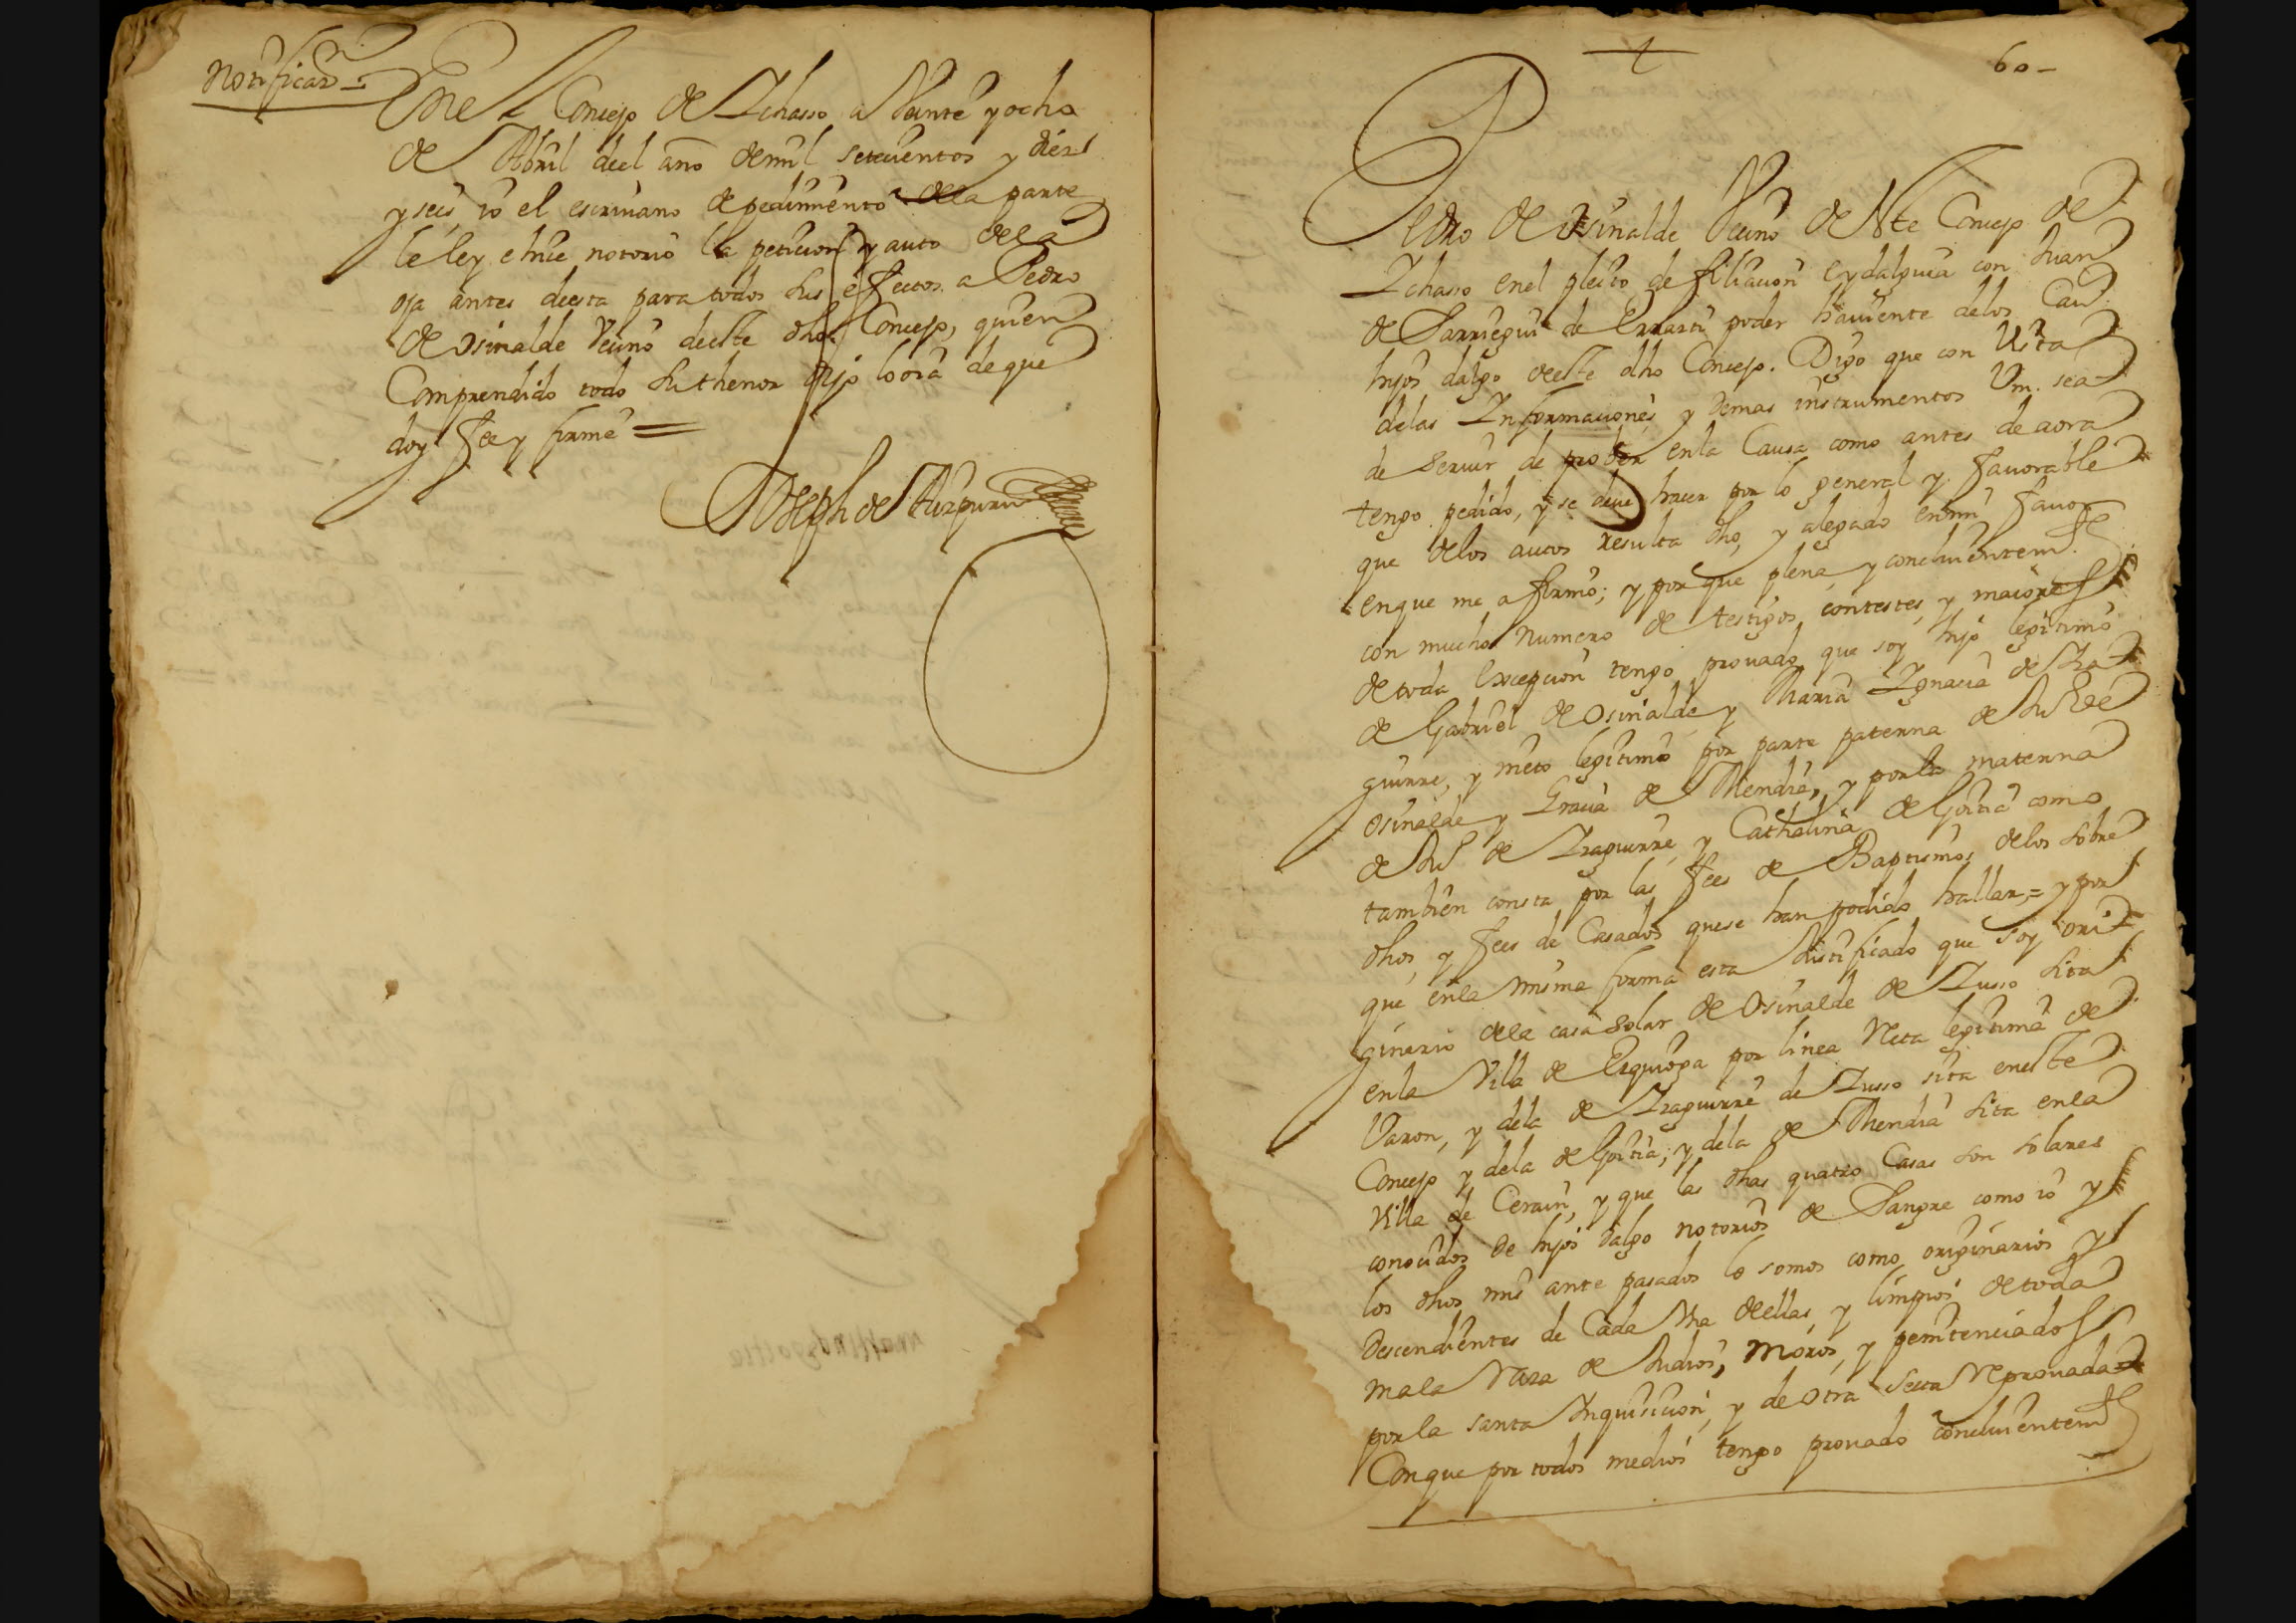 Notificaon
En el Concejo de Ichasso a Veinte y ocho
de Abril deel año de mil setecientos y diez
y seis io el escrivano de pedimiento de la parte
le ley e hice notorio la peticion y auto de la
oja antes deesta para todos sus efectos a Pedro
de Osinalde Vecino deeste dho Concejo, quien
Comprendido todo su thenor dijo lo oia de que
doy fee y firme =
Joseph de Aizpuru
60
Pedro de Osinalde Vecino de Nte Concejo de
Ichasso en el pleito de filiacion e ydalguia con Juan
de Sarriegui de Errarti poder haviente delos Cavs
hijos dalgo deeste dho Concejo. Digo que con Vista
delas Informaciones y demas instrumentos Vm. sea
de servir de prober en la Causa como antes de aora
tengo pedido, y se deve hacer por lo general y favorable
que delos autos resulta dho, y alegado en mi favor
en que me afirmo; y por que plena y concluientemte
con mucho numero de testigos contestes, y maiores
de toda Excepcion tengo provado que soy hijo legitimo
de Gabriel de Osinalde y Maria Ignacia de Yza
guirre, y nieto legitimo por parte paterna de Jul de
Osinalde y Gracia de Mendia, y por la materna
de Jul de Yzaguirre y Cathalina de Goitia como
tambien consta por las fees de Baptismos delos sobre
dhos, y fees de Casados que se han podido hallar = y por
que en la misma forma esta Justificado que soy ori
ginario dela casa solar de Osinalde de Iusso sita
en la Villa de Ezquioga por linea Recta legitima de
Varon, y dela de Yzaguirre de Iusso sita en este
Concejo y dela de Goitia; y dela de Mendia sita en la
Villa de Cerain, y que las dhas quatro Casas son solares
conocidos de hijos dalgo notorios de Sangre como io y
los dhos mis ante pasados lo somos como originarios y
Descendientes de Cada Vna dellas, y limpios de toda
mala Raza de Judios, Moros, y penitenciados
por la santa Inquisicion, y de otra Secta Reprovada
Con que por todos medios tengo provado concluientemte